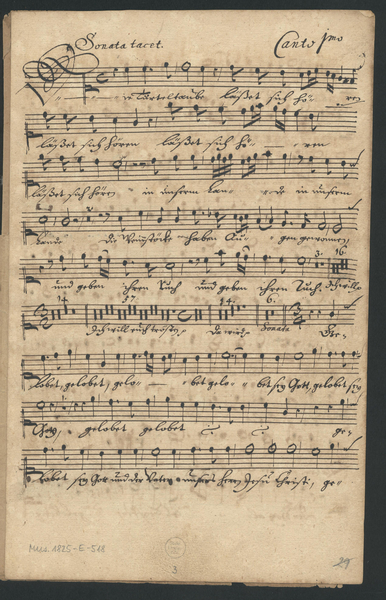 Sonata tacet. Canto 1mo
Die Turteltaube läßet sich hö- ren
läßet sich hören läßet sich hö- ren
läßet sich hören in unserm Lan- de in unserm
Lande. Die Weinstöcke haben Au- gen gewonnen,
und geben ihren Ruch und geben ihren Ruch. Ich will 3. 16
14. 17 14. 6.
Ich will euch trösten, Sonata Ge-
lobet, gelobet, gelo- bet gelo- bet sey Gott, gelobet sey
Gott, gelobet gelobet ge-
lobet sey Gott und der Vater unsers Herrn Jesu Christi, ge-
Mus. 1825-E-518
3